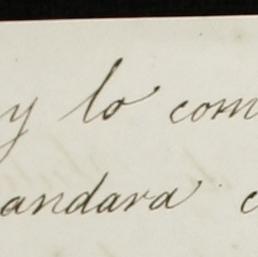 y lo com
andara c